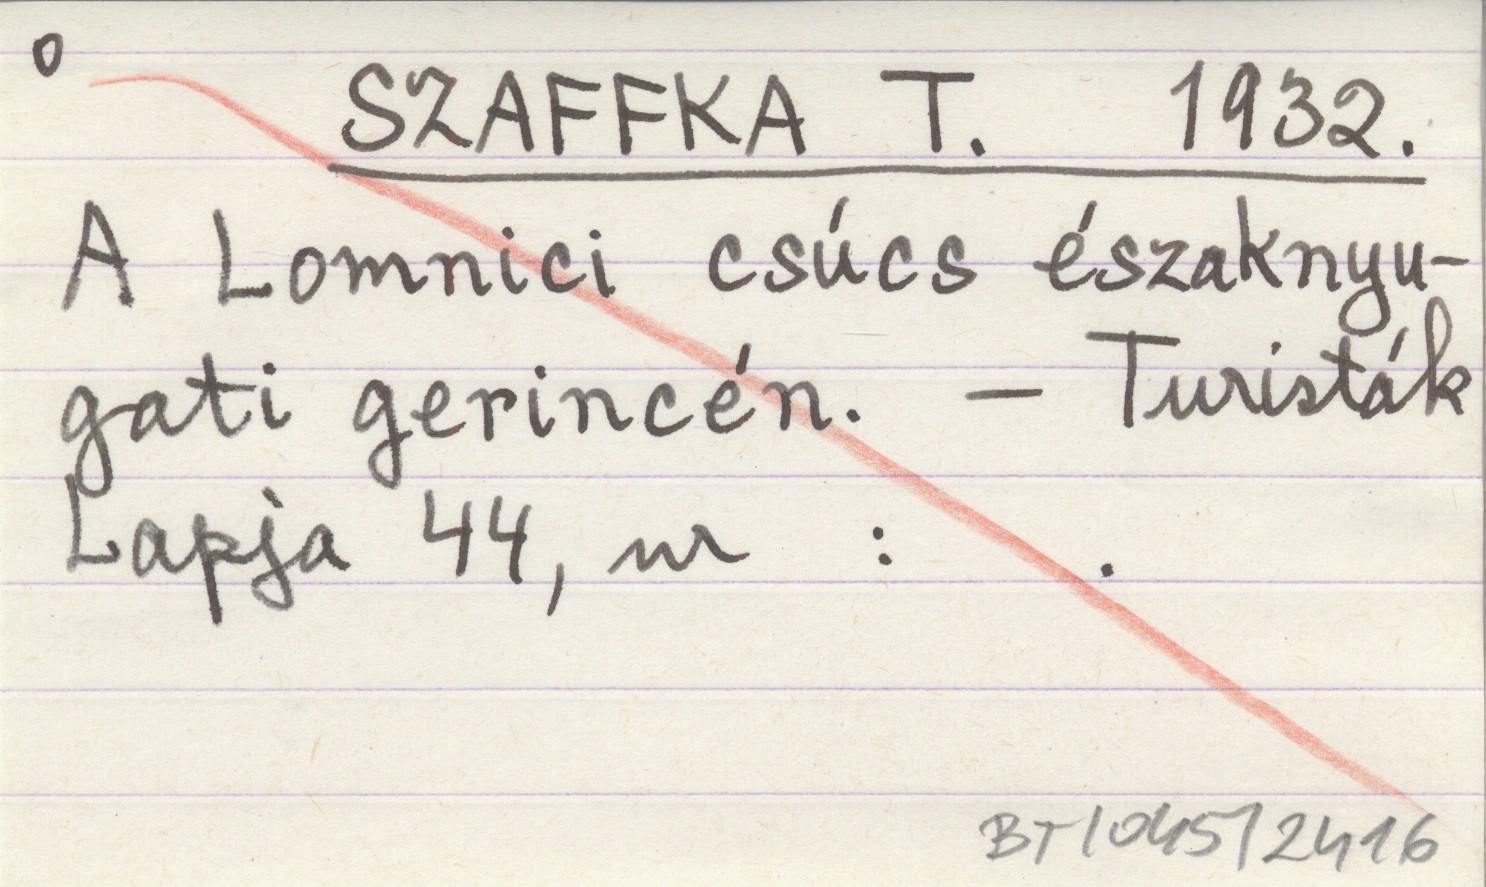 o
SZAFFKA T. 1932.
A Lomnici csúcs északnyu-
gati gerincén. — Turisták
Lapja 44, nr : .
BT/045/2416